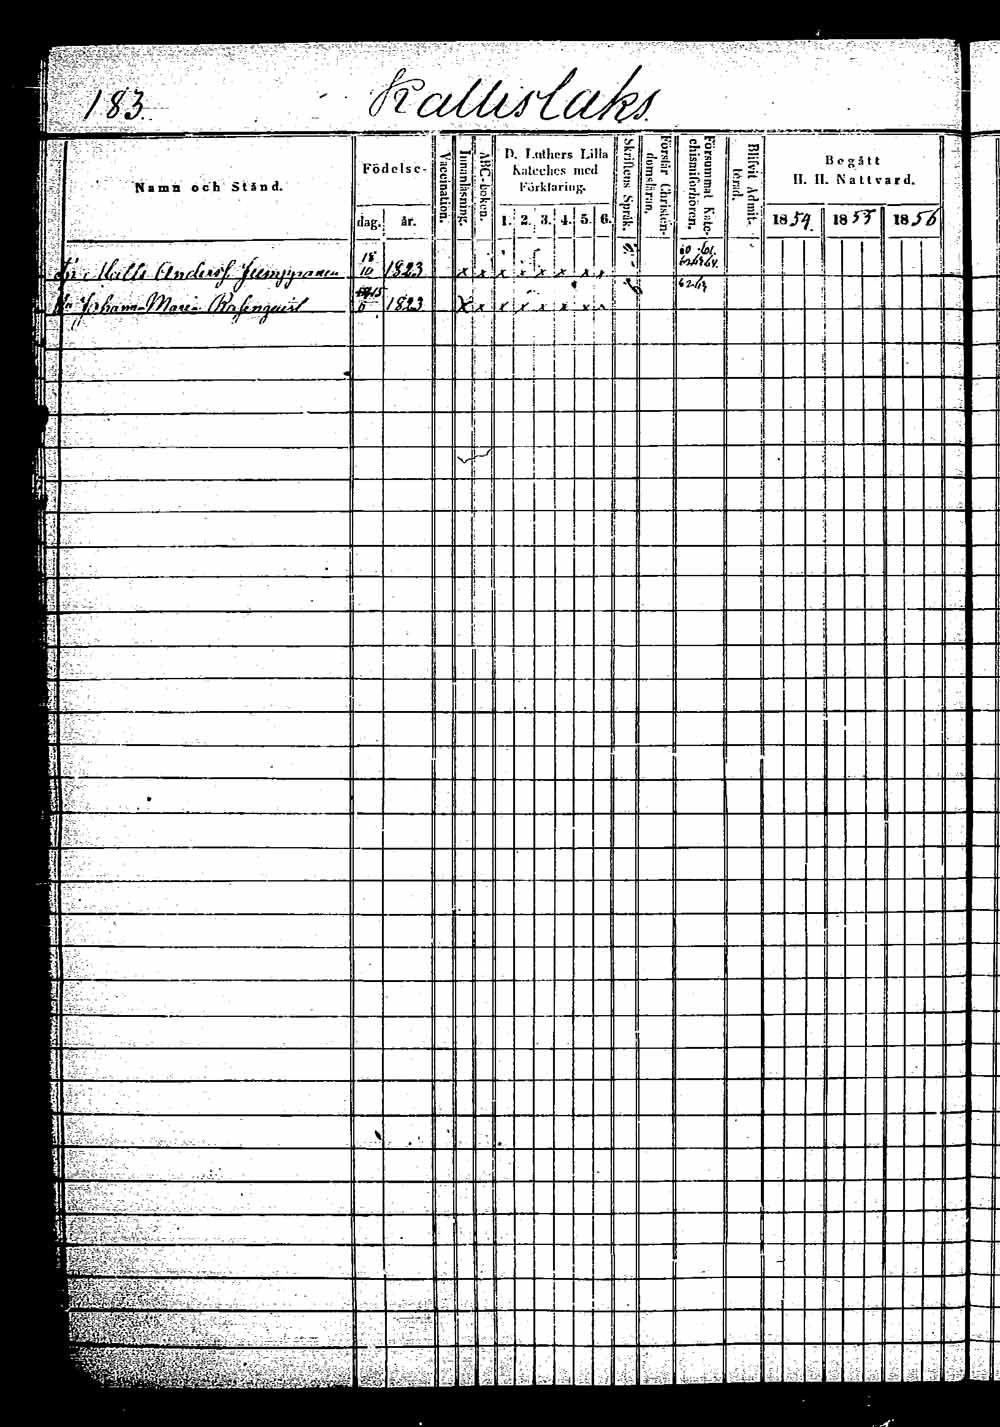 183. Kallislaks.
Namn och Stånd.
Födelse-
dag. år.
Vaccination.
Innanläsning.
ABC-boken.
D. Luthers Lilla
Kateches med
Förklaring.
1. 2. 3. 4. 5. 6.
Skriftens Språk.
Förstår Christen-
domsläran.
Försummat Kate-
chismiförhören.
Blifvit Admit-
terad.
Begått
H. H. Nattvard.
1854. 1855 1856
18
10 1823 x x x x x x x x
Johanna Maria 1823 x x x x x x x
62.63